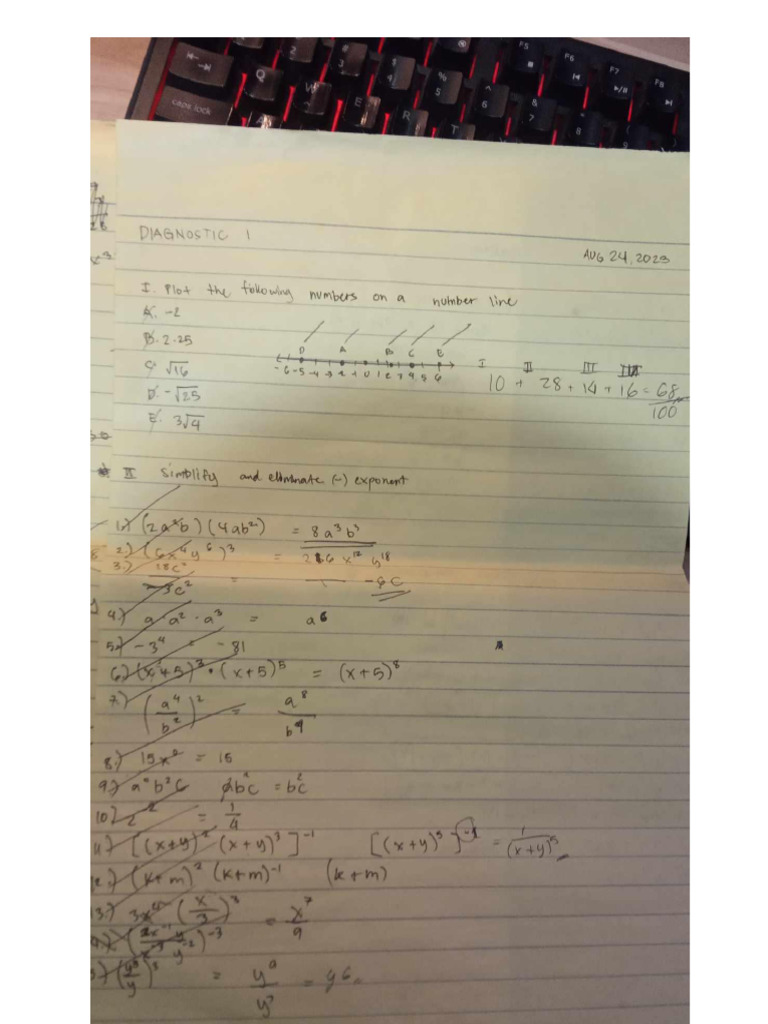 caps lock Q W E R T A
F5 F6 F7 F8
2 3 4 5 6 7 8 9
DIAGNOSTIC 1
AUG 24, 2023
I. Plot the following numbers on a number line
A. -2
B. 2.25
C. √16
D. -√25
E. 3√4
D A B C E
-6 -5 -4 -3 -2 -1 0 1 2 3 4 5 6
I II III
10 + 28 + 14 + 16 = 68
100
II Simplify and eliminate (-) exponent
1.) (2a²b) (4ab²) = 8a³b³
2.) (6x⁴y⁶)³ = 216 x¹² b¹⁸
3.) = -6c
-3c²
4.) a · a² · a³ = a6
5.) -3⁴ = -81
6.) (x+5)³ · (x+5)⁵ = (x+5)⁸
7.) (a⁴/b²)² = a⁸/b⁴
8.) 15x⁰ = 15
9.) a⁰b²c bc = bc²
10.) 2⁻² = 1/4
11.) [(x+y)² (x+y)³]⁻¹ [(x+y)⁵]⁻¹ = 1/(x+y)⁵
(k+m)² (k+m)⁻¹ (k+m)
13.) 3x⁴ (x/3)³ = x⁷/9
= y⁹/y³ = y6